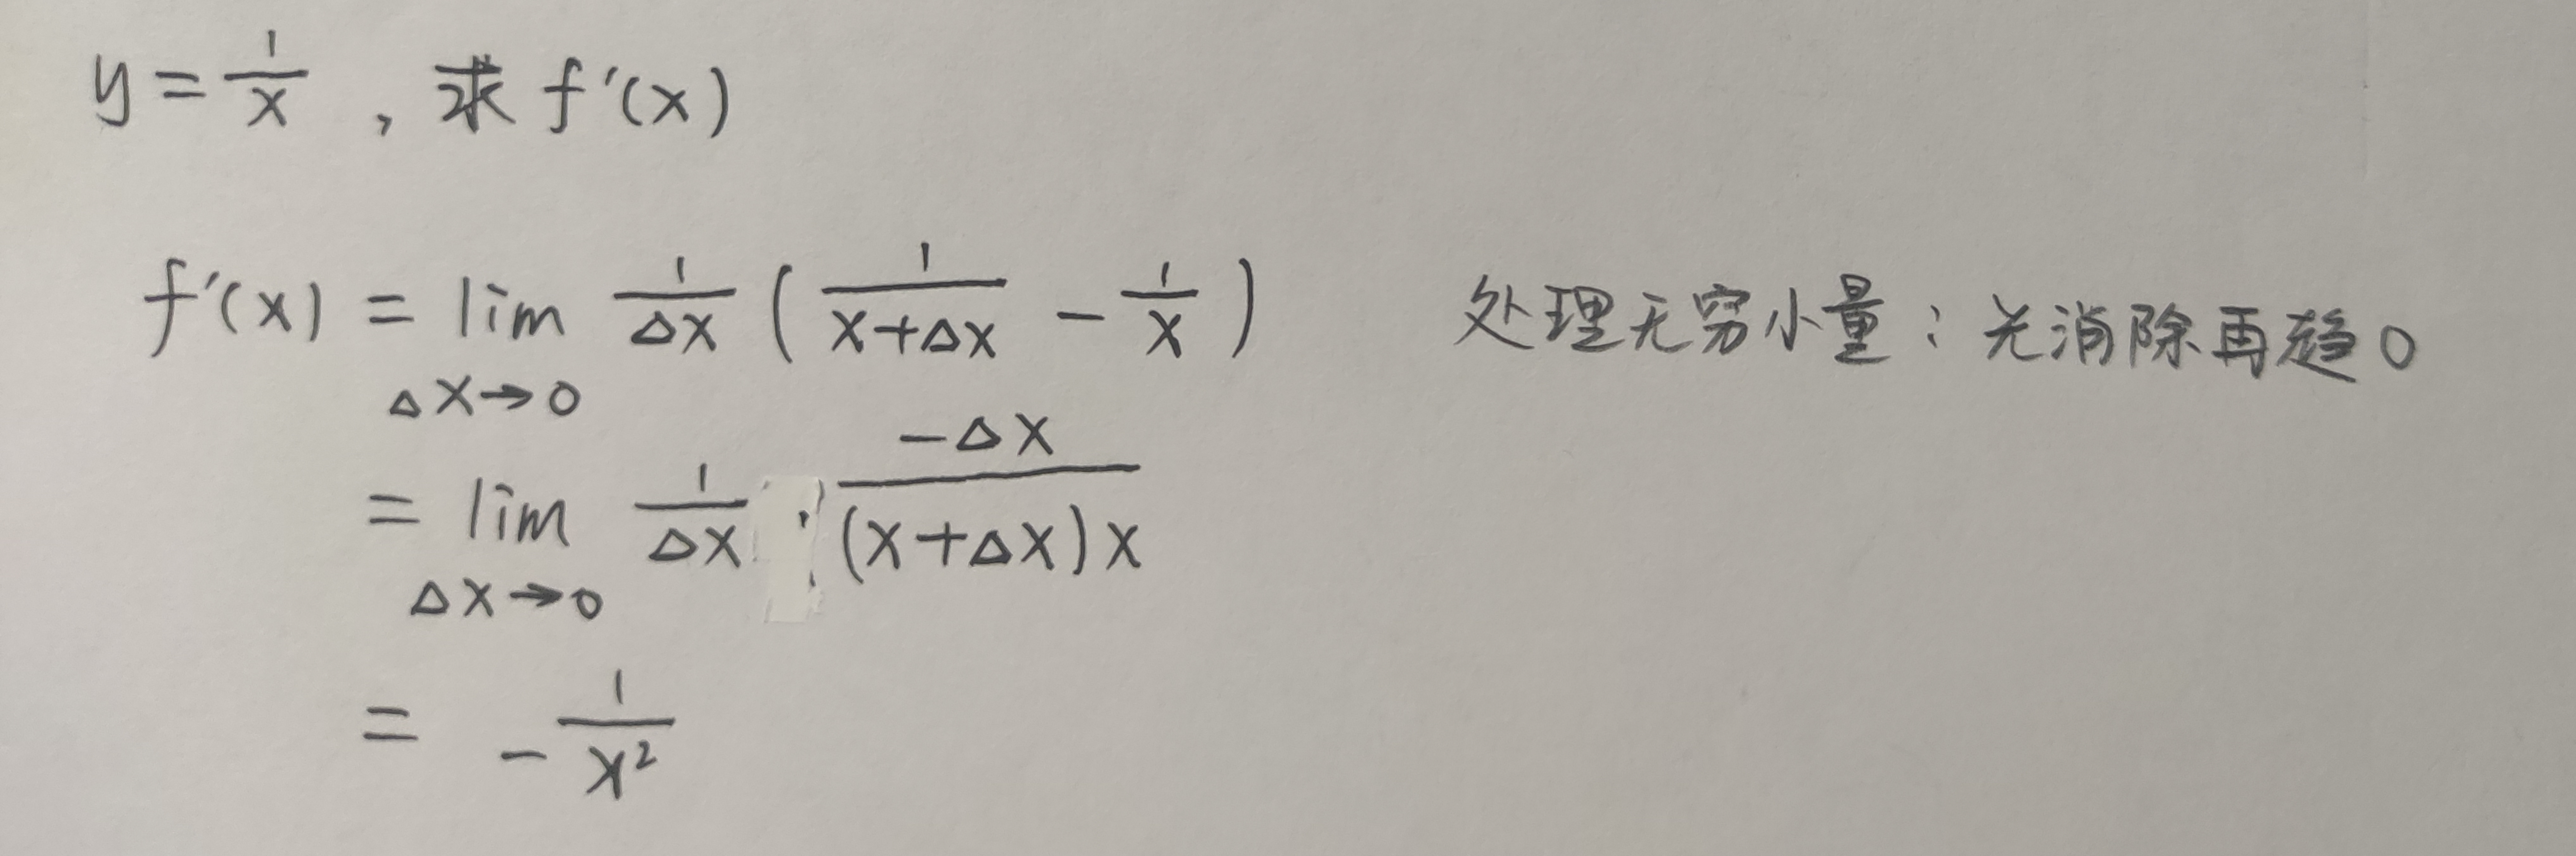 y = 1/x , 求 f'(x)
f'(x) = lim Δx→0 1/Δx ( 1/(x+Δx) - 1/x ) 处理无穷小量：先消除再趋0
= lim Δx→0 1/Δx · -Δx/((x+Δx)x)
= - 1/x²